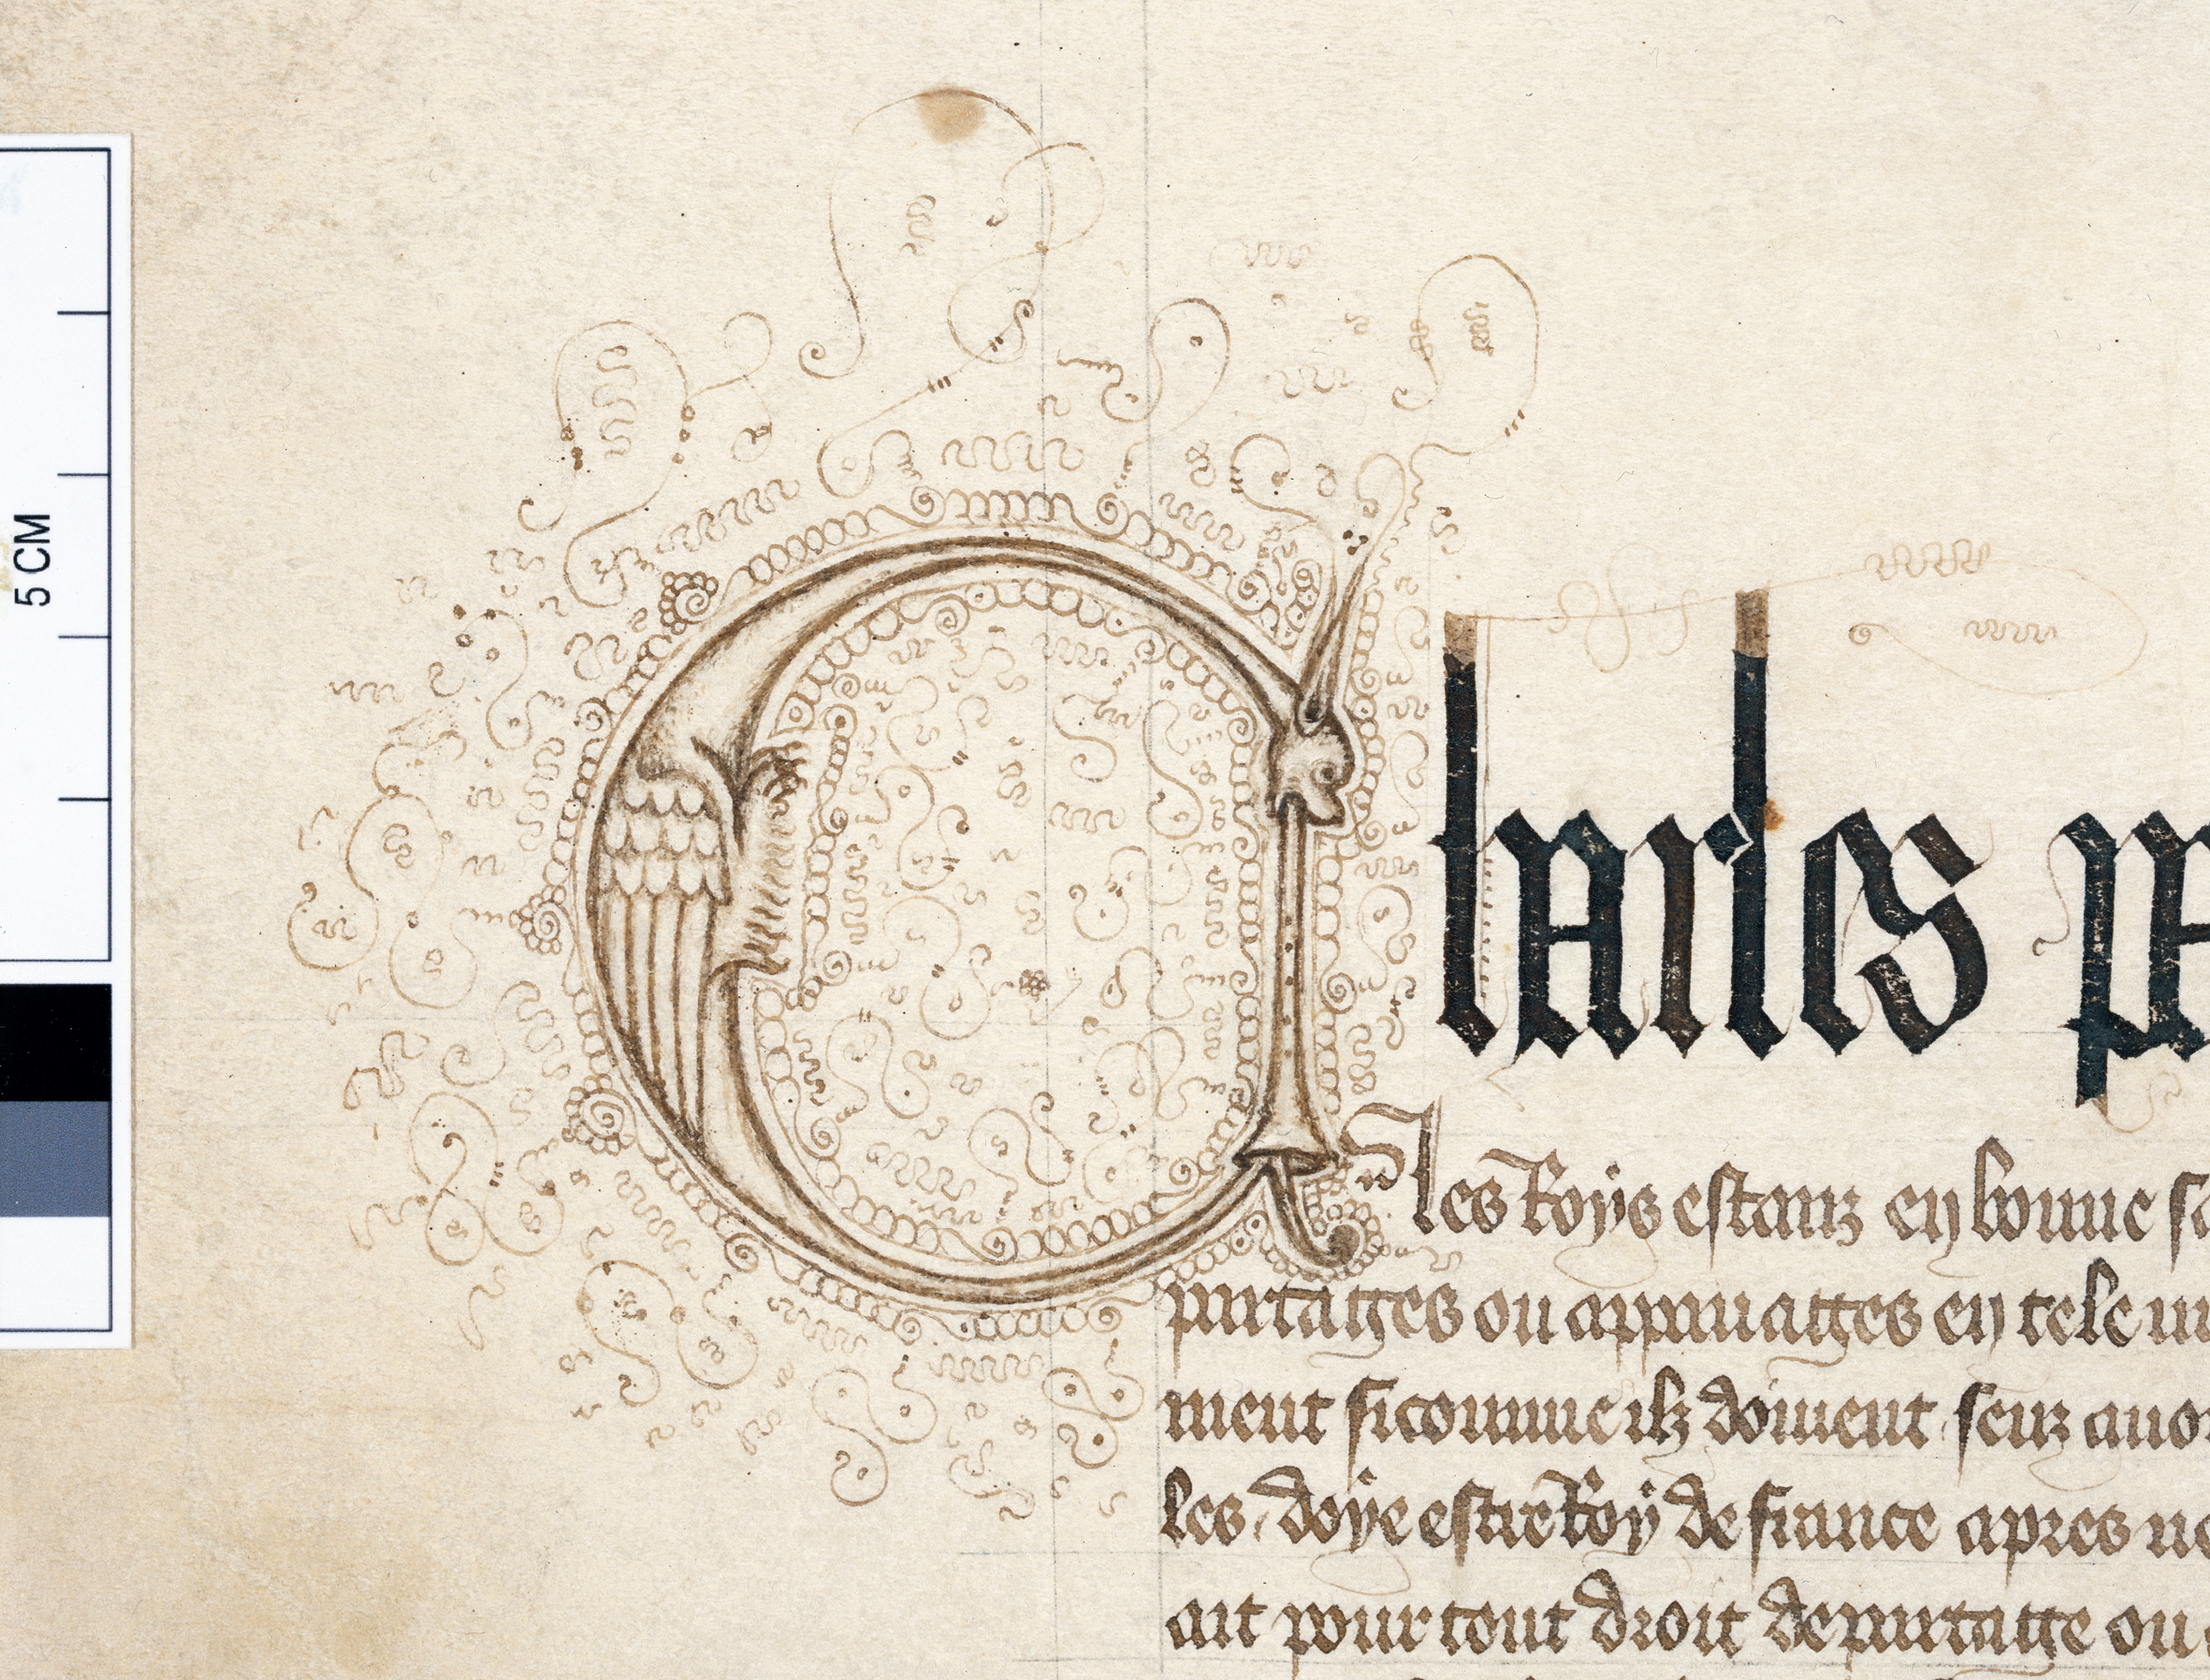 5 CM
Charles p
les Roys estanz en bonne s
partages ou appanages en tele m
ment sicomme ilz doiuent senz auo
les doye estre Roy de france apres no
ait pour tout droit de partage ou